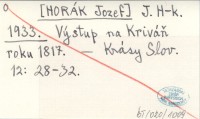 [HORÁK Jozef] J. H-k.
1933. Výstup na Kriváň
roku 1817. — Krásy Slov.
12: 28-32.